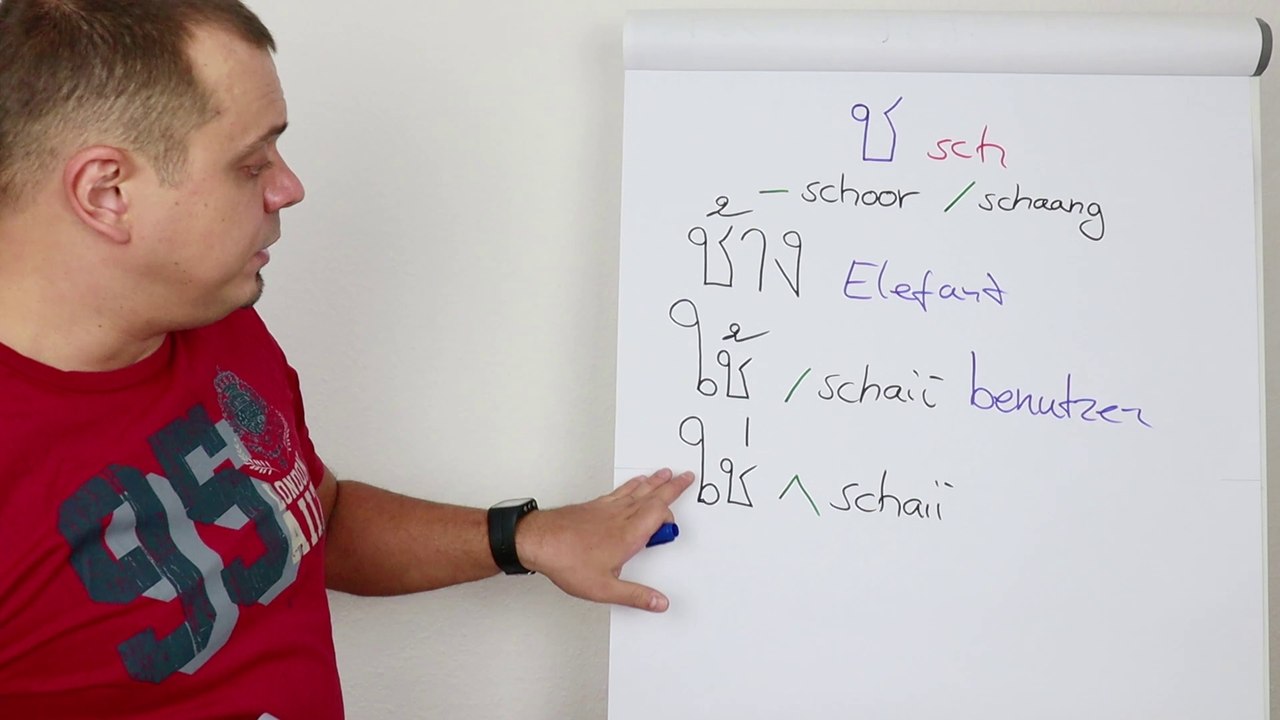 ช sch
– schoor / schaang
ช้าง Elefant
ใช้ / schaii benutzen
ใช่ ∧ schaii
95
LONDON